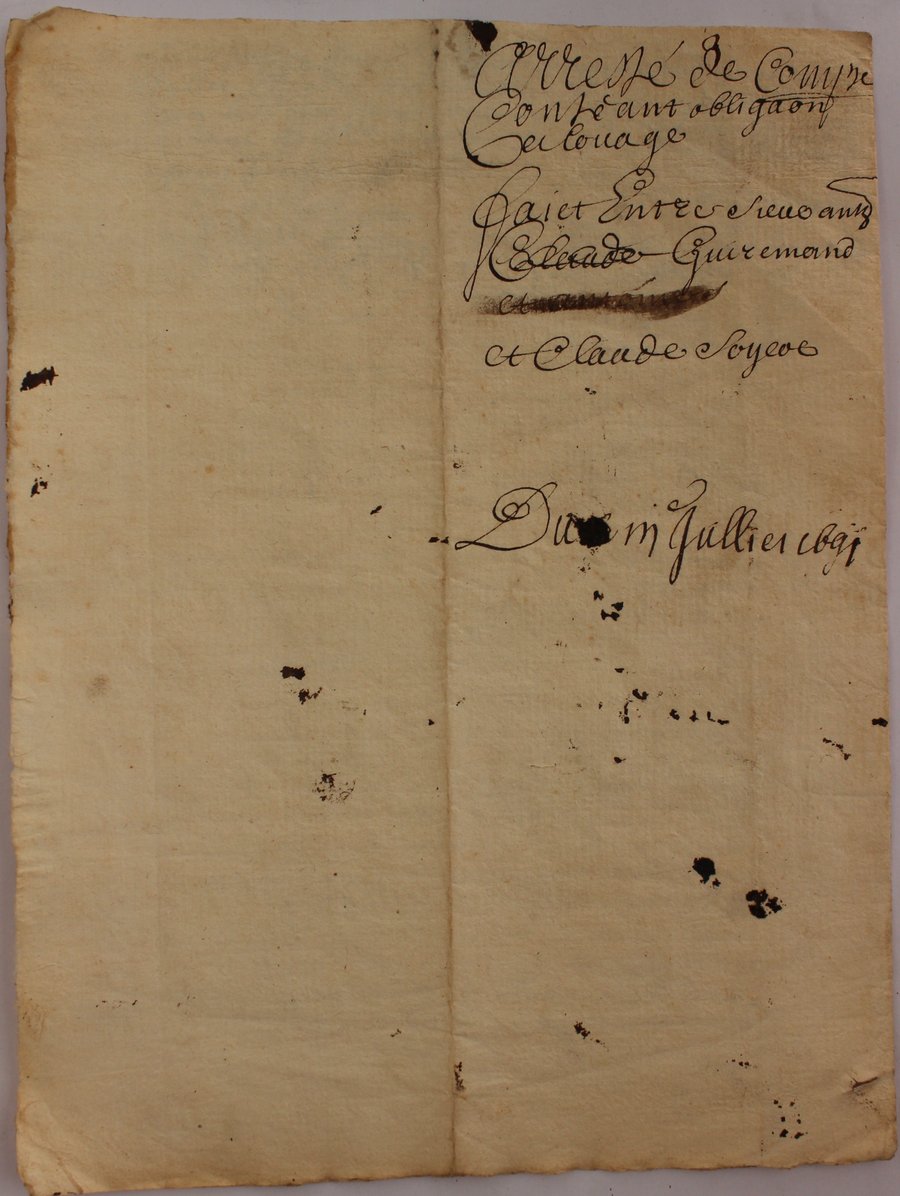 Arresté de Compte
Conteant obligaon
Et louage
Faict Entre sieur anth
Claude Guiremand
et
et Claude Soyeoe
Du m Jullier 1691